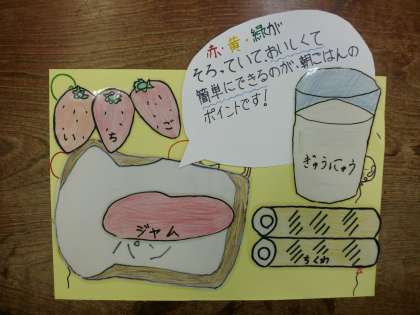 赤・黄・緑が
そろっていて、おいしくて
簡単にできるのが、朝ごはんの
ポイントです!
いちご
ぎゅうにゅう
ジャム
パン
ちくわ